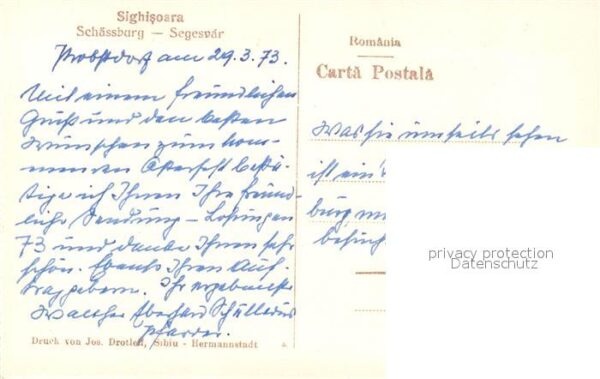 Sighișoara
Schässburg — Segesvár
Probstdorf am 29.3.73.
Mit einem freundlichen
Gruß und den besten
Wünschen zum kom-
menden Osterfest bestä-
tige ich Ihnen Ihre freund-
liche Sendung – Losungen
73 und danke Ihnen sehr
schön. Ebenso Ihren Auf-
traggebern. Ihr ergebenster
Walther Eberhard Schullerus
Pfarrer.
Druck von Jos. Drotleff, Sibiu - Hermannstadt
România
Cartă Postală
Was sie umseits sehen
ist ein
burg
besuch
privacy protection
Datenschutz